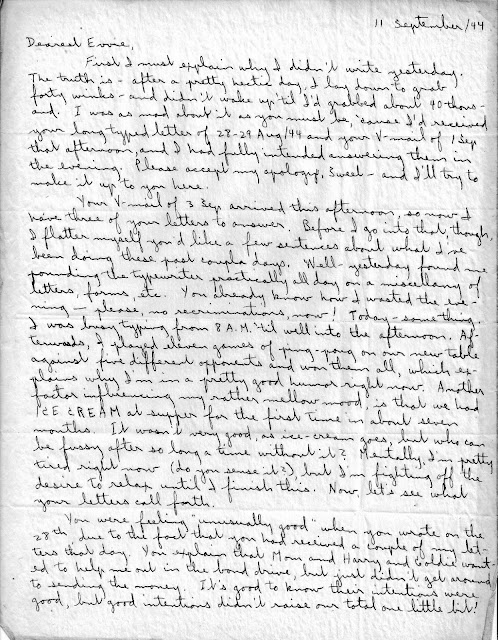 11 September/44
Dearest Evvie,
First I must explain why I didn't write yesterday.
The truth is - after a pretty hectic day, I lay down to grab
forty winks - and didn't wake up 'til I'd grabbed about 40 thous-
and. I was as mad about it as you must be, 'cause I'd received
your long typed letter of 28-29 Aug/44 and your V-mail of 1 Sep
that afternoon, and I had fully intended answering them in
the evening. Please accept my apology, Sweet - and I'll try to
make it up to you here.
Your V-mail of 3 Sep arrived this afternoon, so now I
have three of your letters to answer. Before I go into that, though,
I flatter myself you'd like a few sentences about what I've
been doing these past coupla days. Well - yesterday found me
pounding the typewriter practically all day on a miscellany of
letters, forms, etc. You already know how I wasted the eve-
ning - please, no recriminations, now! Today - same thing.
I was busy typing from 8 A.M. 'til well into the afternoon. Af-
terwards, I played eleven games of ping-pong on our new table
against five different opponents and won them all, which ex-
plains why I'm in a pretty good humor right now. Another
factor influencing my rather mellow mood, is that we had
ICE CREAM at supper for the first time in about seven
months. It wasn't very good, as ice-cream goes, but who can
be fussy after so long a time without it? Mentally, I'm pretty
tired right now (do you sense it?) but I'm fighting off the
desire to relax until I finish this. Now, let's see what
your letters call forth.
You were feeling "unusually good" when you wrote on the
28th, due to the fact that you had received a couple of my let-
ters that day. You explain that Mom and Harry and Goldie want-
ed to help me out in the bond drive, but just didn't get around
to sending the money. It's good to know their intentions were
good, but good intentions didn't raise our total one little bit!